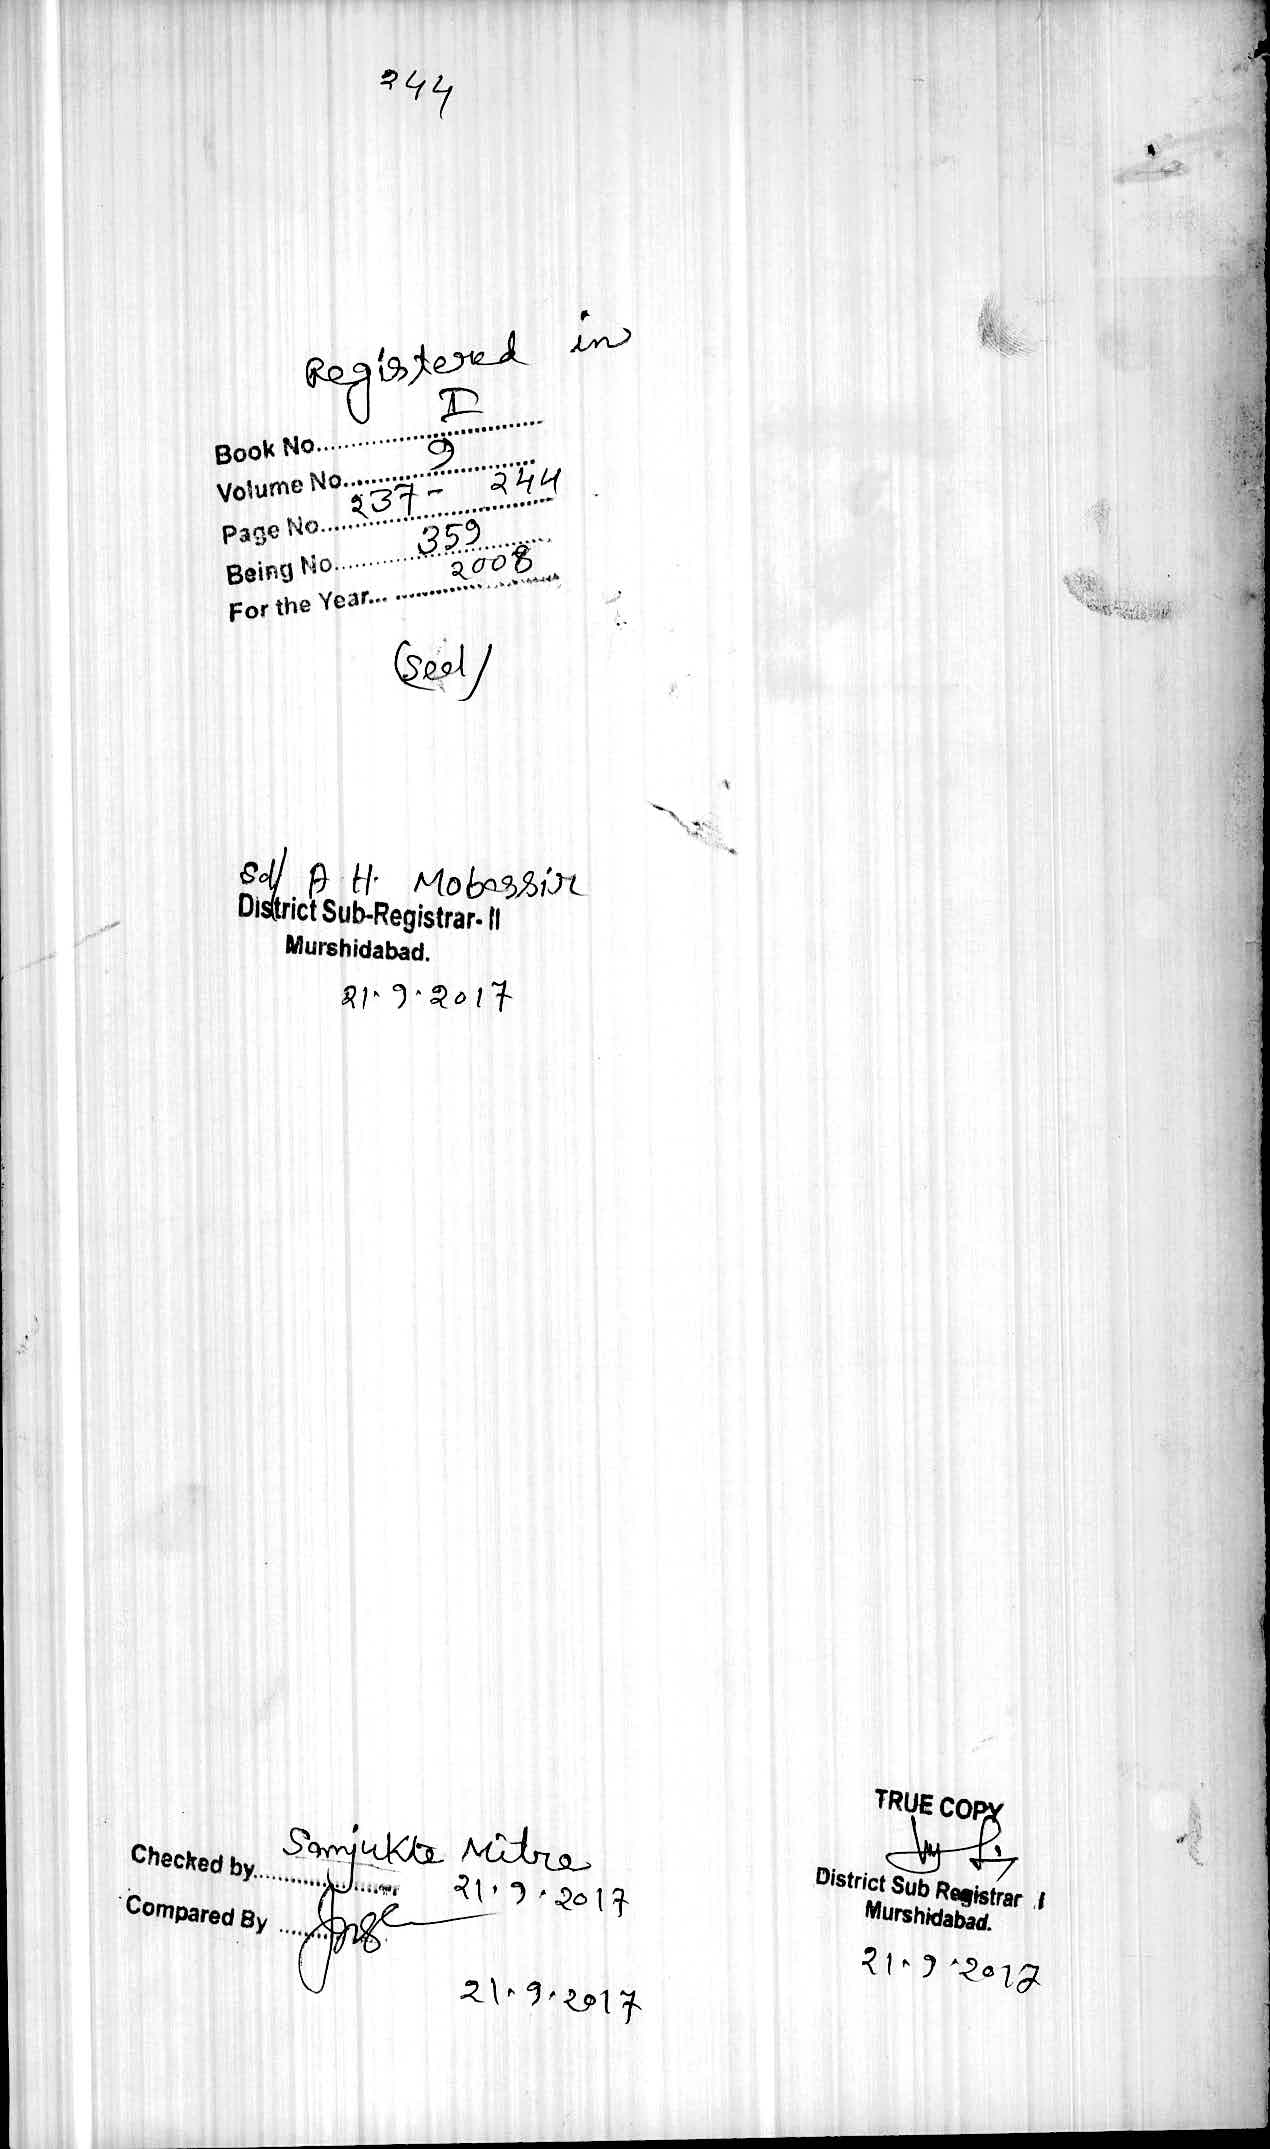 244
Registered in
Book No. I
Volume No. 9
Page No. 237 - 244
Being No. 359
For the Year... 2008
(Seal)
Sd/ A H. Mobassir
District Sub-Registrar- II
Murshidabad.
21.9.2017
Checked by Sanjukta Mitra
21.9.2017
Compared By
21.9.2017
TRUE COPY
District Sub Registrar I
Murshidabad.
21.9.2017